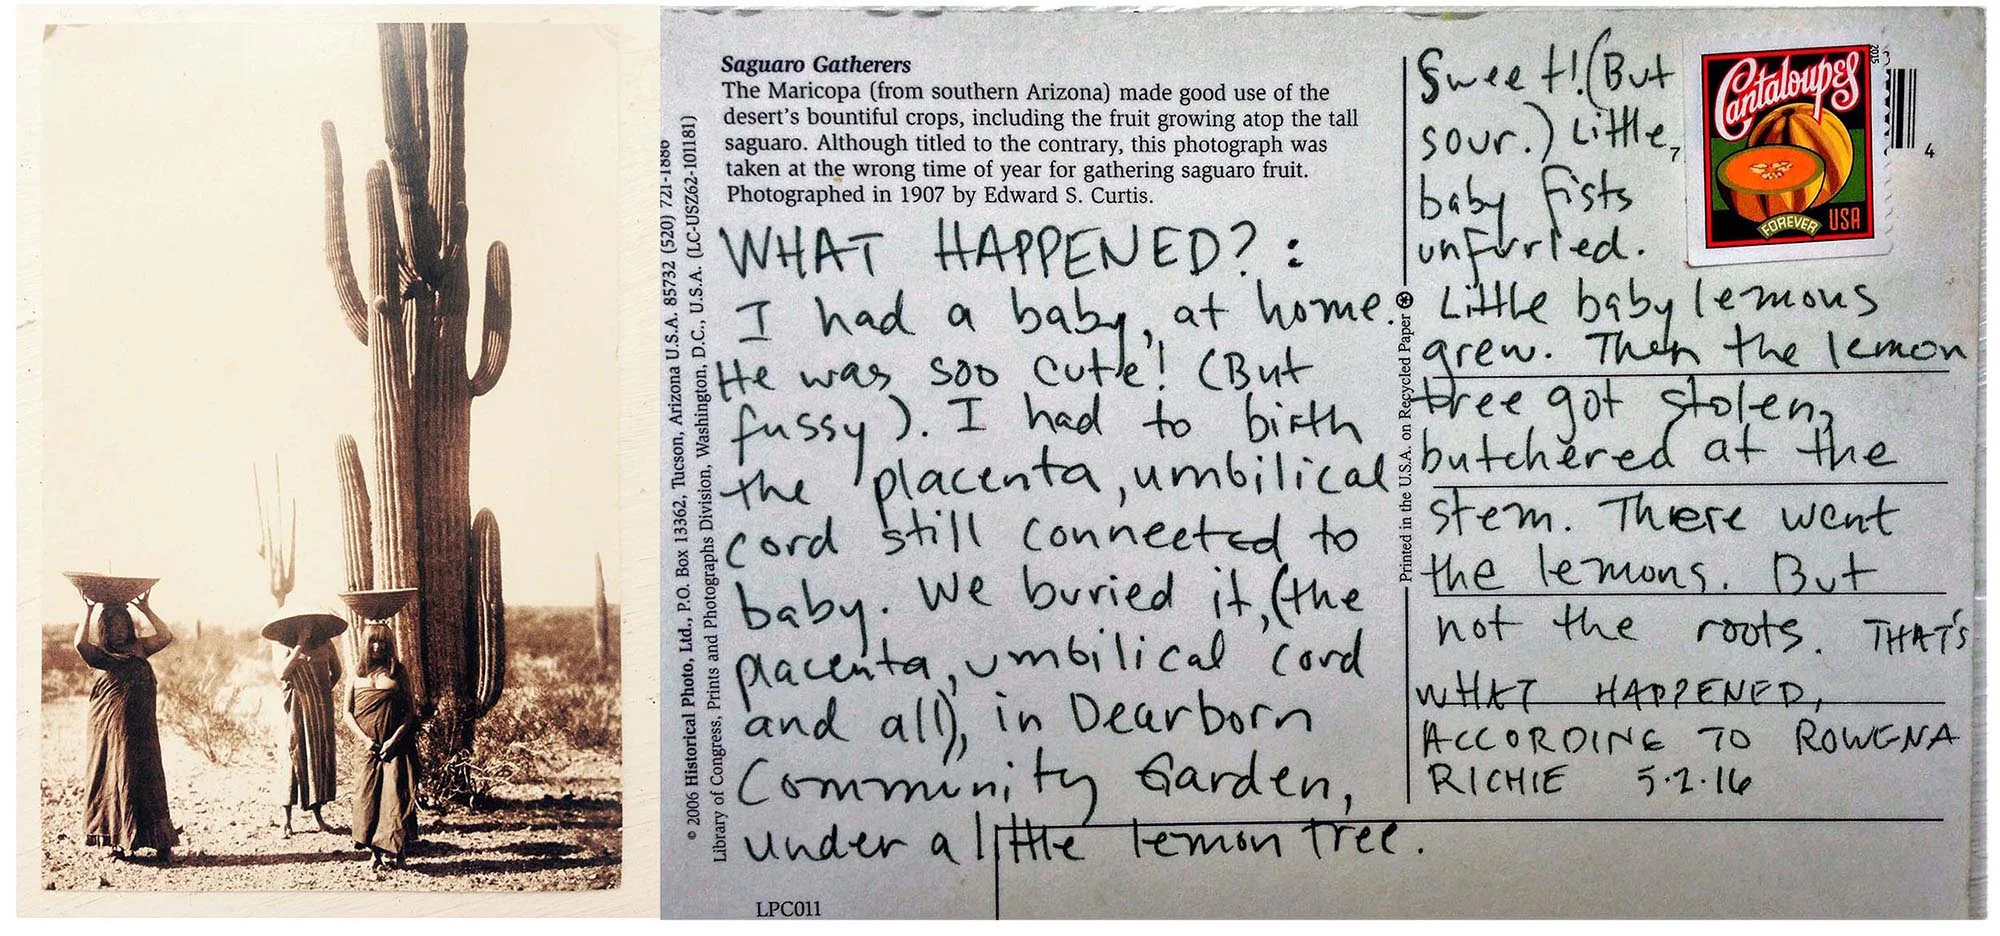 Saguaro Gatherers
The Maricopa (from southern Arizona) made good use of the
desert's bountiful crops, including the fruit growing atop the tall
saguaro. Although titled to the contrary, this photograph was
taken at the wrong time of year for gathering saguaro fruit.
Photographed in 1907 by Edward S. Curtis.
WHAT HAPPENED? :
I had a baby, at home.
He was soo cute! (But
fussy). I had to birth
the placenta, umbilical
cord still connected to
baby. We buried it, (the
placenta, umbilical cord
and all), in Dearborn
Community Garden,
under a little lemon tree.
Sweet! (But
sour.) Little,
baby fists
unfurled.
Little baby lemons
grew. Then the lemon
tree got stolen,
butchered at the
stem. There went
the lemons. But
not the roots. THAT'S
WHAT HAPPENED,
ACCORDING TO ROWENA
RICHIE 5.2.16
Cantaloupes
FOREVER USA
2015
7
4
© 2006 Historical Photo, Ltd., P.O. Box 13362, Tucson, Arizona U.S.A. 85732 (520) 721-1886
Library of Congress, Prints and Photographs Division, Washington, D.C., U.S.A. (LC-USZ62-101181)
Printed in the U.S.A. on Recycled Paper
LPC011